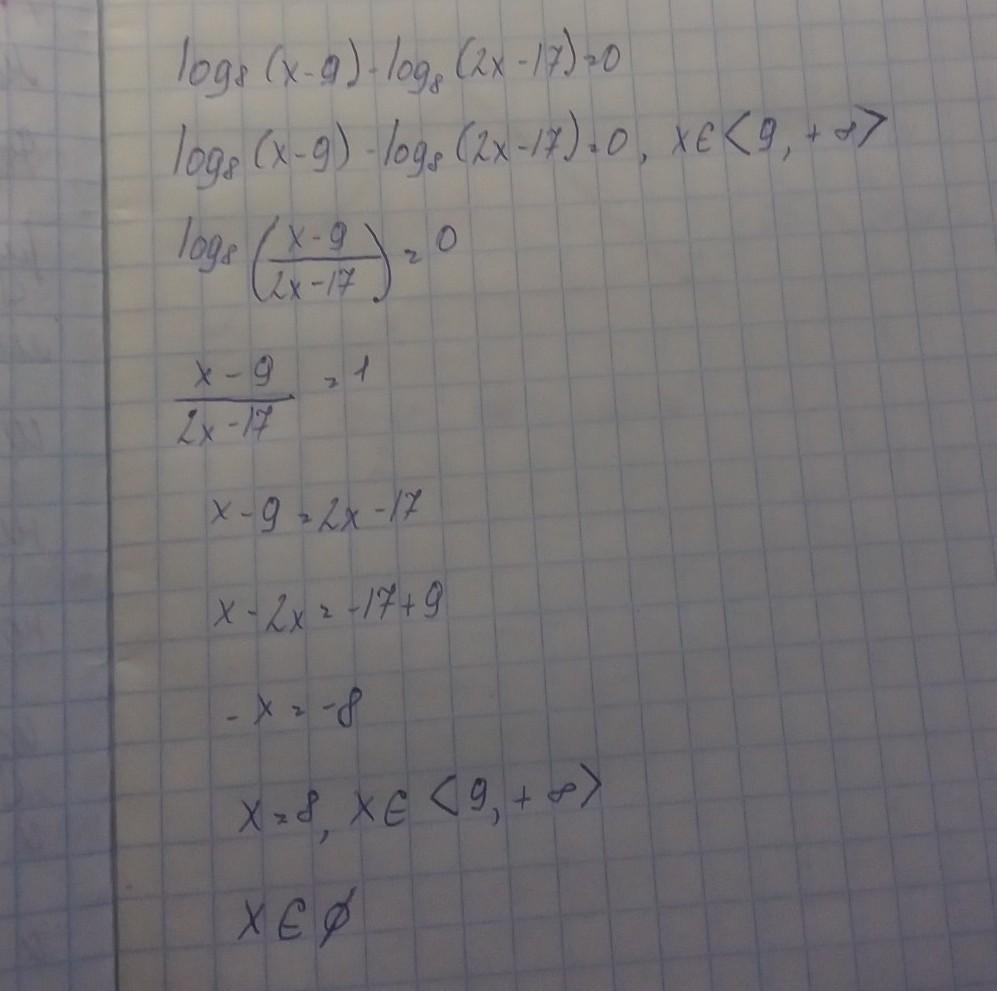 log₈(x-9)-log₈(2x-17)=0
log₈(x-9)-log₈(2x-17)=0, x∈<9,+∞>
log₈((x-9)/(2x-17))=0
(x-9)/(2x-17)=1
x-9=2x-17
x-2x=-17+9
-x=-8
x=8, x∈<9,+∞>
x∈∅